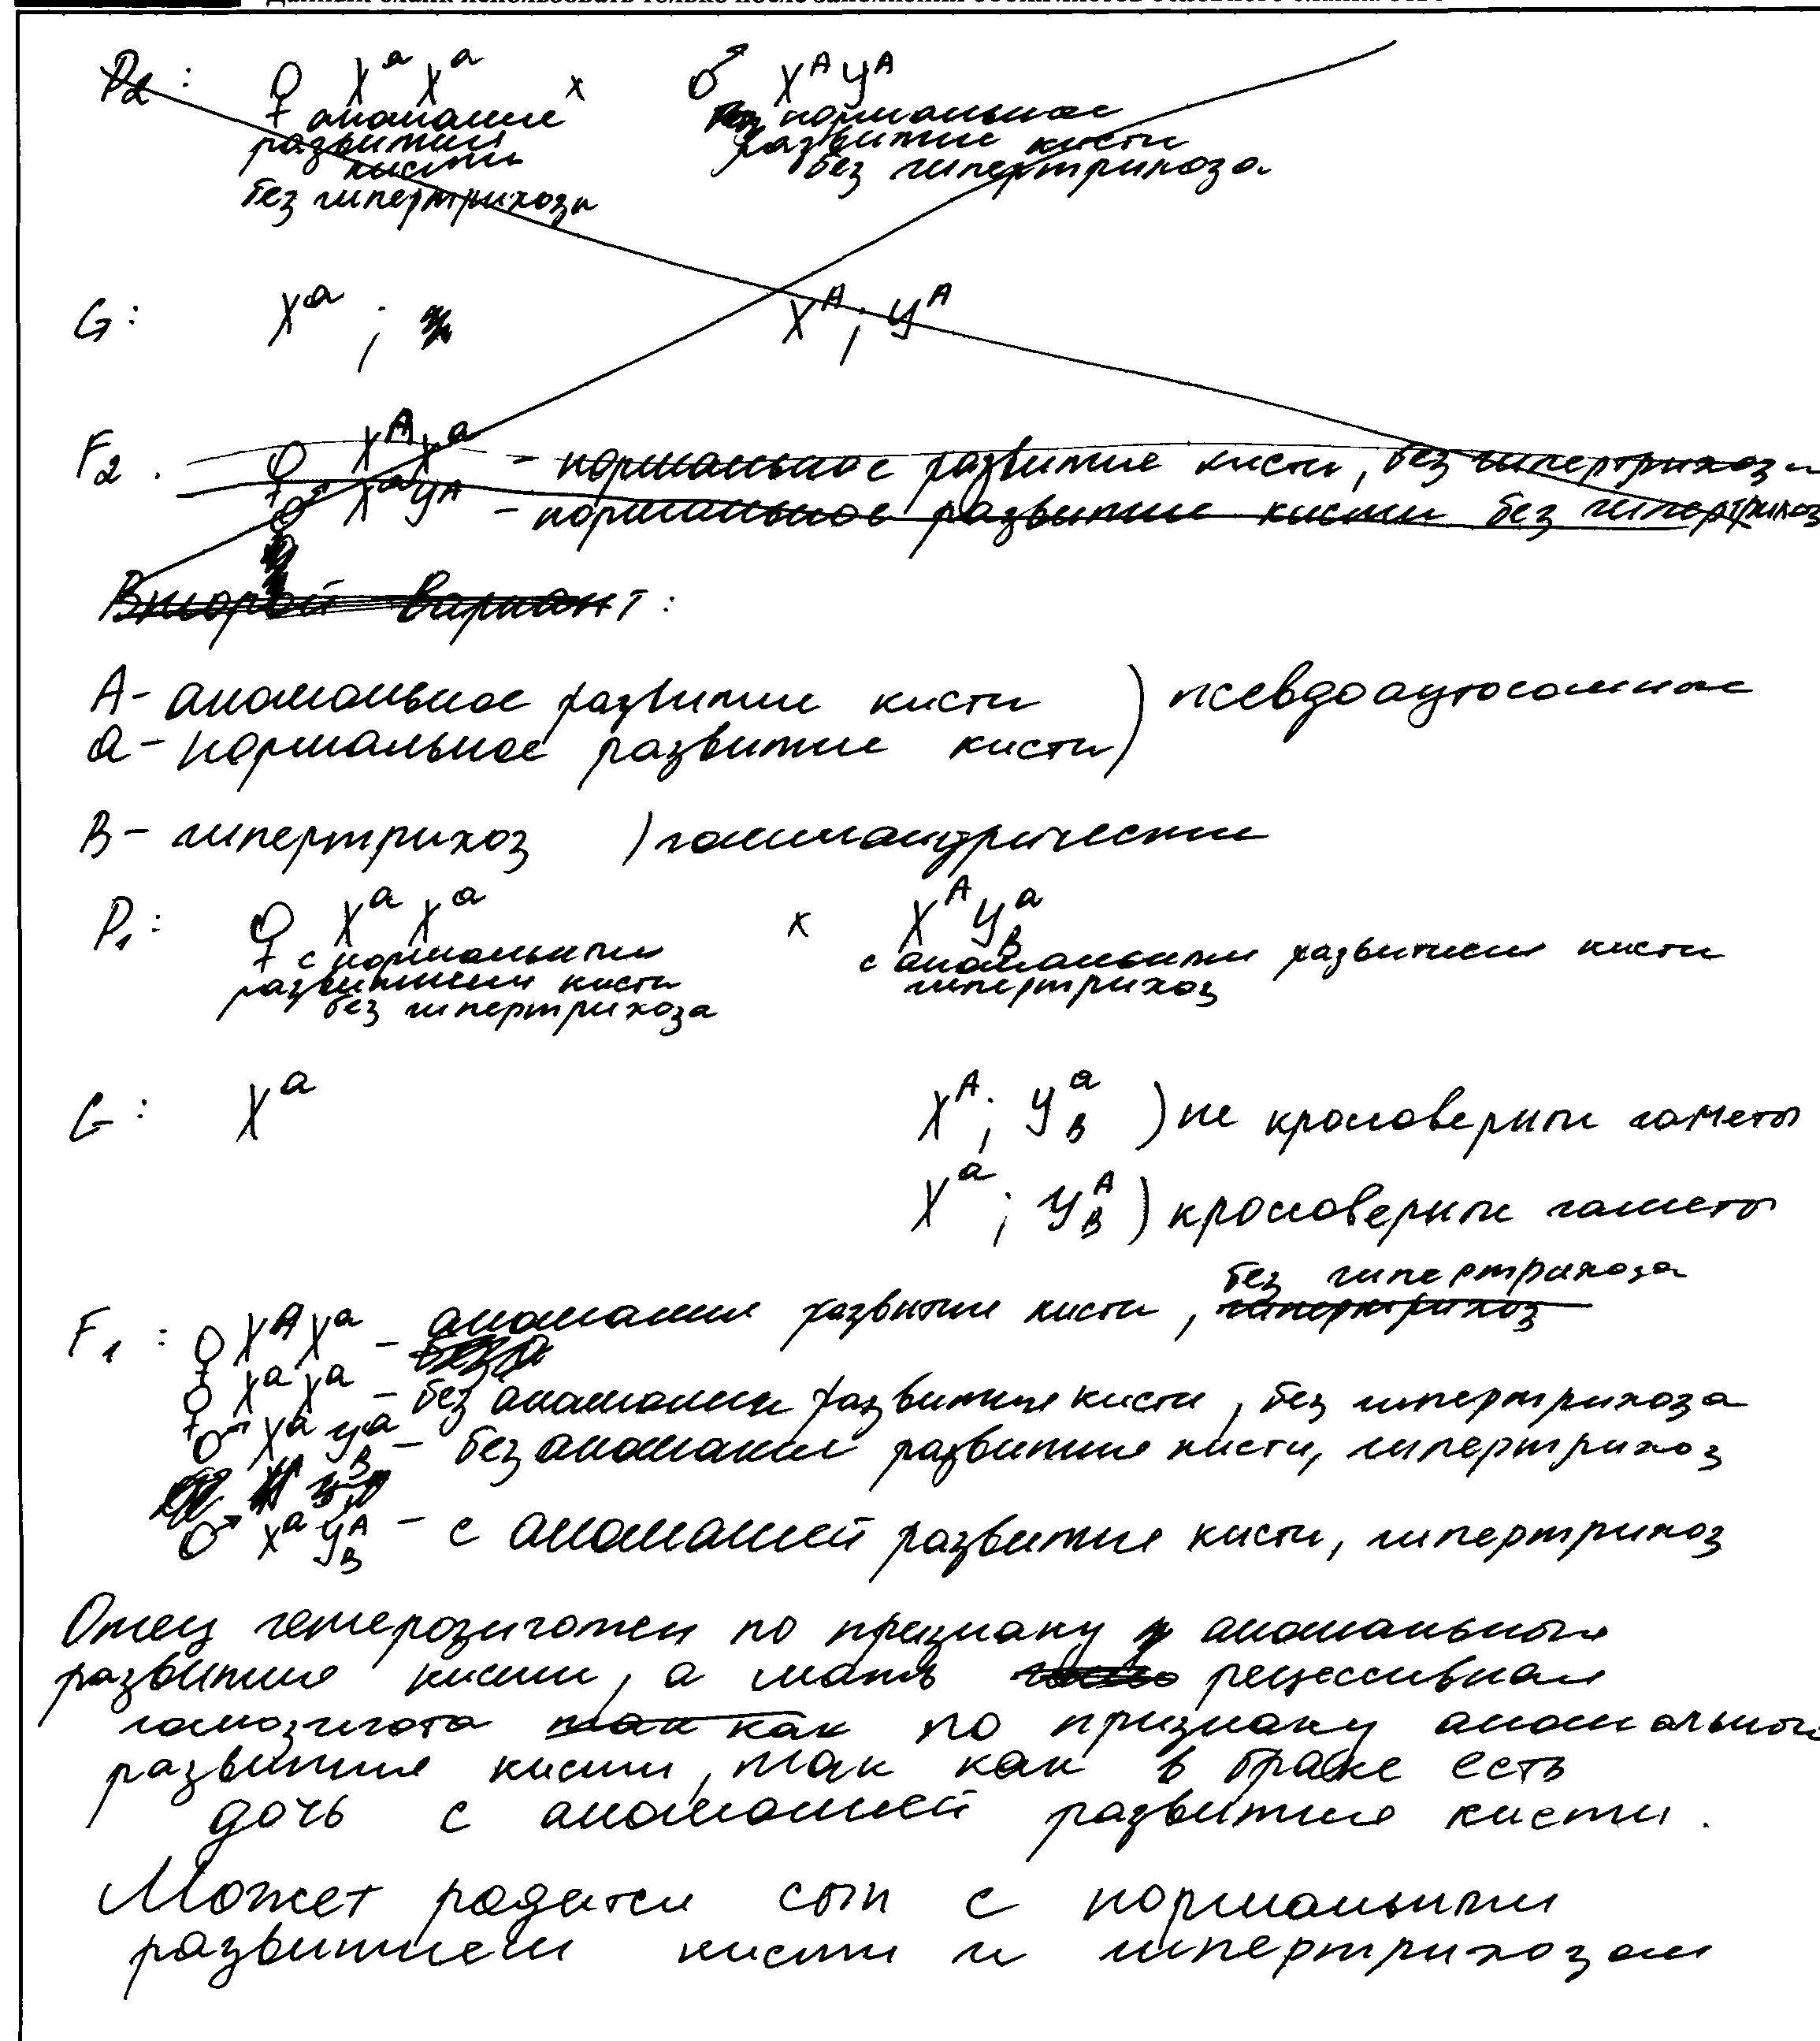 P2 : ♀ XᵃXᵃ x ♂ XᴬYᴬ
аномалие нормальное
развития развитие кисти
кисти без гипертрихоза
без гипертрихоза
G : Xᵃ ; Xᴬ ; Yᴬ
F2 . ♀ XᴬXᵃ - нормальное развитие кисти, без гипертрихоза
♂ XᵃYᴬ - нормальное развитие кисти без гипертрихоз
Второй вариант :
A - аномальное развитие кисти ) псевдоаутосомное
a - нормальное развитие кисти )
B - гипертрихоз )
P1 : ♀ XᵃXᵃ x XᴬYᵃB
с нормальными с аномальными развитием кисти
развитием кисти гипертрихоз
без гипертрихоза
G : Xᵃ Xᴬ ; YᵃB ) не кроссоверныи гаметы
Xᵃ ; YᴬB ) кроссоверныи гаметы
без гипертрихоза
F1 : ♀ XᴬXᵃ - аномалие развитие кисти, гипертрихоз
♀ XᵃXᵃ - без аномалии развитие кисти, без гипертрихоза
♂ XᵃYᵃB - без аномалии развитие кисти, гипертрихоз
♂ XᵃYᴬB - с аномалией развитие кисти, гипертрихоз
Отец гетерозиготен по признаку аномальные
развитие кисти, а мать рецессивная
гомозигота так как по признаку аномальные
развитие кисти, так как в браке есть
дочь с аномалией развитие кисти.
Может родится сын с нормальными
развитием кисти и гипертрихозом